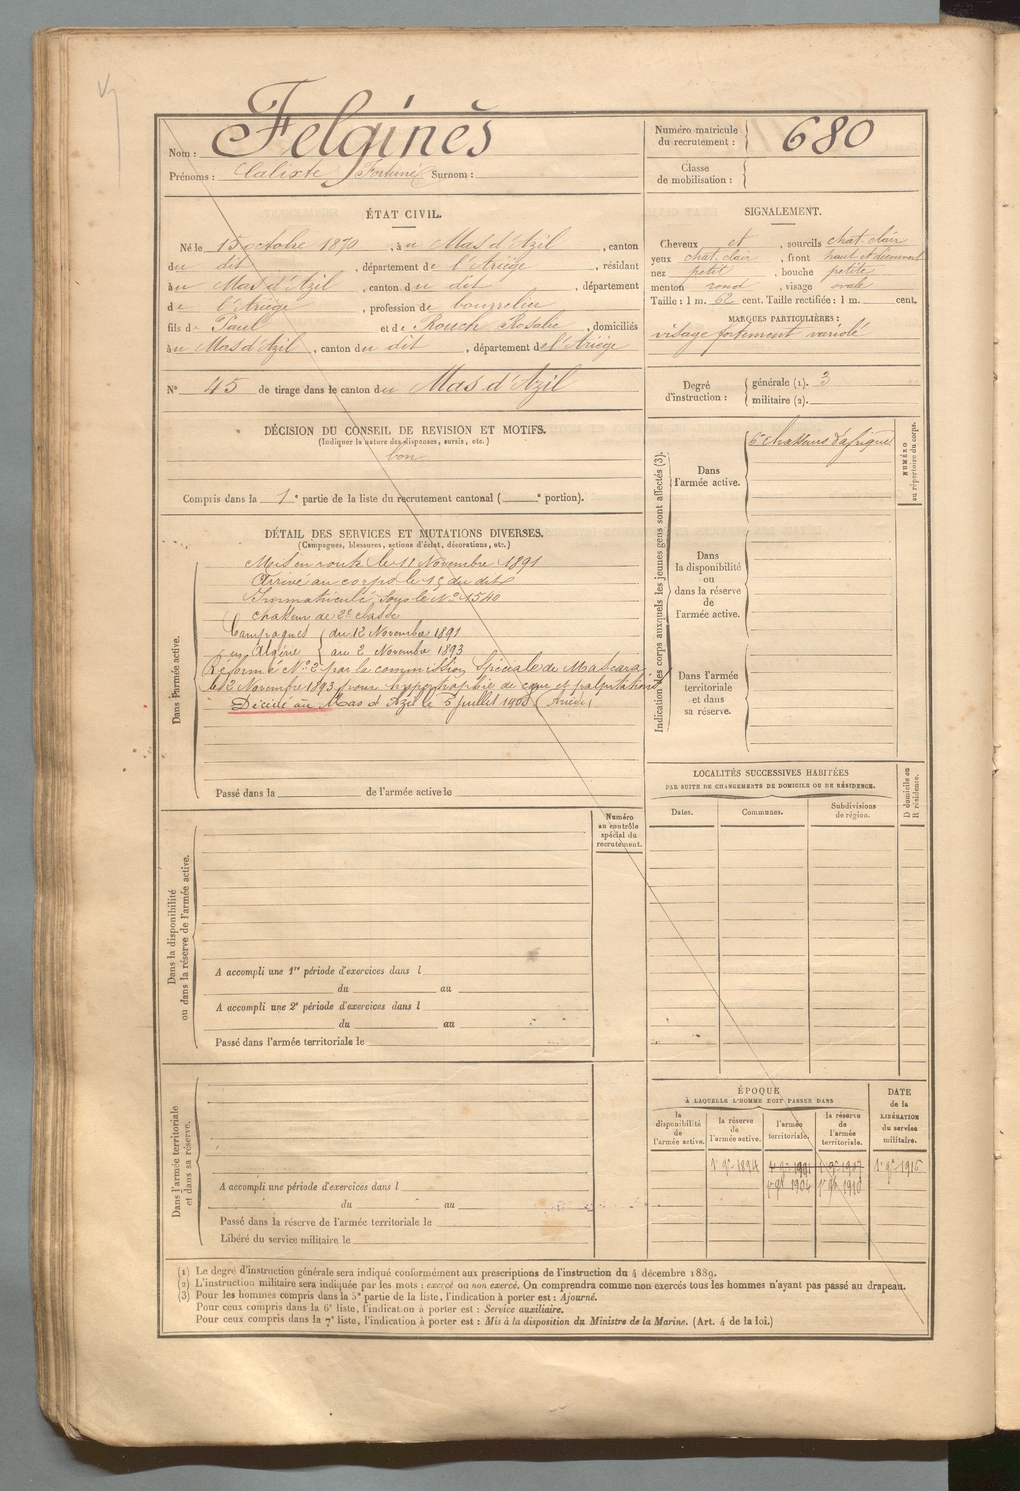 Nom : Felginès
Prénoms : Calixte Fortuné Surnom :
Numéro matricule du recrutement : 680
Classe de mobilisation :
ÉTAT CIVIL.
Né le 15 octobre 1870, à u Mas d'Azil, canton
du dit, département de l'Ariège, résidant
à u Mas d'Azil, canton du dit, département
de l'Ariège, profession de bourrelier
fils de Paul et de Rouch Rosalie, domiciliés
à u Mas d'Azil, canton du dit, département de l'Ariège
N° 45 de tirage dans le canton du Mas d'Azil
SIGNALEMENT.
Cheveux et, sourcils chat. clair
yeux chat. clair, front haut et découvert
nez petit, bouche petite
menton rond, visage ovale
Taille : 1 m. 62 cent. Taille rectifiée : 1 m. cent.
MARQUES PARTICULIÈRES :
visage fortement variolé
Degré d'instruction : générale (1). 3
militaire (2).
DÉCISION DU CONSEIL DE REVISION ET MOTIFS.
(Indiquer la nature des dispenses, sursis, etc.)
bon
Compris dans la 1e partie de la liste du recrutement cantonal ( e portion).
DÉTAIL DES SERVICES ET MUTATIONS DIVERSES.
(Campagnes, blessures, actions d'éclat, décorations, etc.)
Dans l'armée active.
Mis en route le 11 Novembre 1891
Arrivé au corps le 15 du dit
Immatriculé sous le N° 1540
chasseur de 2e classe
Campagnes { du 12 Novembre 1891
en Algérie { au 2 Novembre 1893
Réformé N° 2 par la commission Spéciale de Mascara
le 2 Novembre 1893 pour hypertrophie de cœur et palpitations
Décédé au Mas d'Azil le 5 juillet 1908 (Ariège)
Passé dans la de l'armée active le
Indication des corps auxquels les jeunes gens sont affectés (3).
NUMÉRO au répertoire du corps.
Dans l'armée active.
6e chasseurs d'afrique
Dans la disponibilité ou dans la réserve de l'armée active.
Dans l'armée territoriale et dans sa réserve.
LOCALITÉS SUCCESSIVES HABITÉES
PAR SUITE DE CHANGEMENTS DE DOMICILE OU DE RÉSIDENCE.
Dates. Communes. Subdivisions de région.
D domicile ou R résidence.
Numéro au contrôle spécial du recrutement.
Dans la disponibilité ou dans la réserve de l'armée active.
A accompli une 1re période d'exercices dans l
du au
A accompli une 2e période d'exercices dans l
du au
Passé dans l'armée territoriale le
Dans l'armée territoriale et dans sa réserve.
A accompli une période d'exercices dans l
du au
Passé dans la réserve de l'armée territoriale le
Libéré du service militaire le
ÉPOQUE
À LAQUELLE L'HOMME DOIT PASSER DANS
la disponibilité de l'armée active. la réserve de l'armée active. l'armée territoriale. la réserve de l'armée territoriale.
DATE de la LIBÉRATION du service militaire.
1e 9e 1894 1e 9e 1901 1e 9e 1907 1e 9e 1915
1904 1910
(1) Le degré d'instruction générale sera indiqué conformément aux prescriptions de l'instruction du 4 décembre 1889.
(2) L'instruction militaire sera indiquée par les mots : exercé ou non exercé. On comprendra comme non exercés tous les hommes n'ayant pas passé au drapeau.
(3) Pour les hommes compris dans la 5e partie de la liste, l'indication à porter est : Ajourné.
Pour ceux compris dans la 6e liste, l'indication à porter est : Service auxiliaire.
Pour ceux compris dans la 7e liste, l'indication à porter est : Mis à la disposition du Ministre de la Marine. (Art. 4 de la loi.)